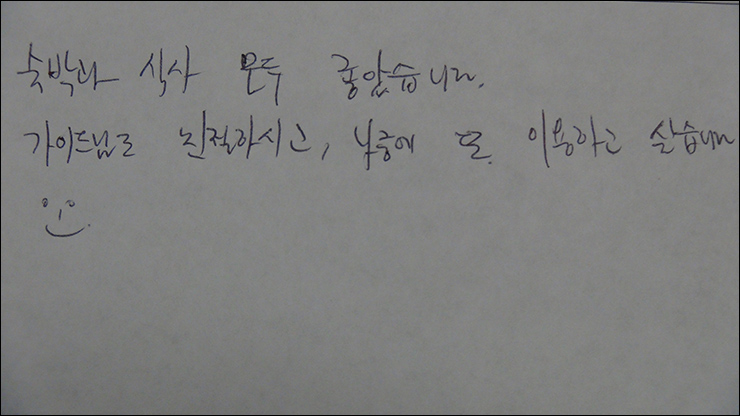 숙박과 식사 모두 좋았습니다.
가이드님도 친절하시고, 나중에 또 이용하고 싶습니다